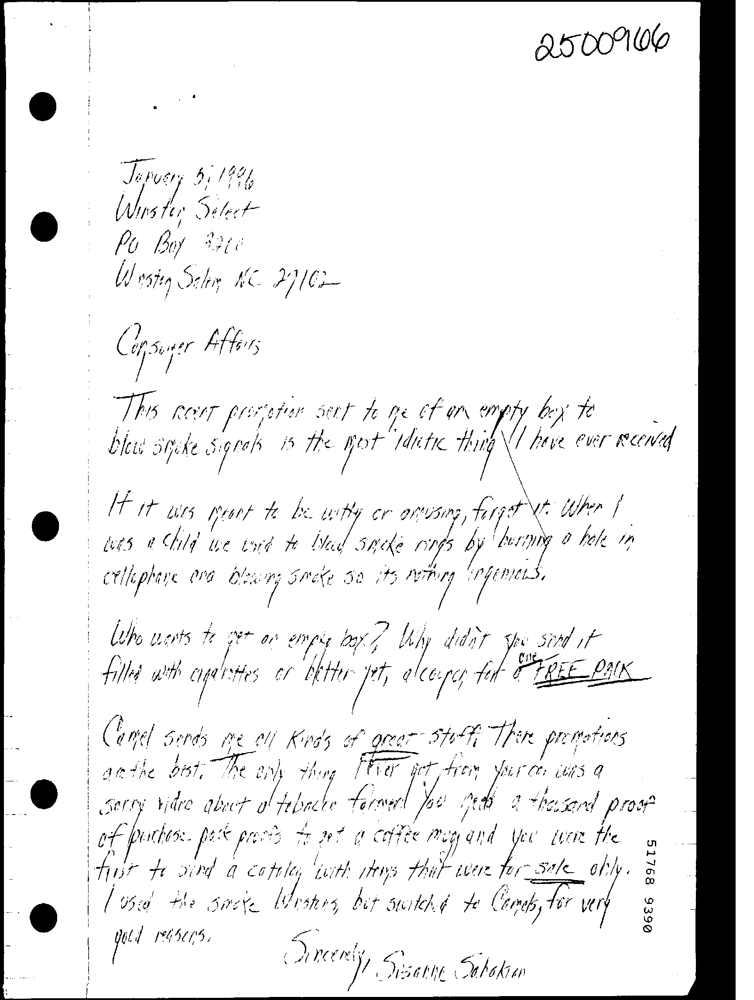 25009166
January 5, 1996
Winston Select
PO Box
Winston Salem NC 27102
Consumer Affairs
This recent promotion sent to me of an empty box to
blow smoke signals is the most idiotic thing I have ever received
If it was meant to be witty or amusing, forget it. When I
was a child we used to blow smoke rings by burning a hole in
cellophane and blowing smoke so its nothing ingenious.
Who wants to get an empty box? Why didn't you send it
filled with cigarettes or better yet, a coupon for one FREE PACK
Camel sends me all kinds of great stuff. There promotions
are the best. The only thing I ever got from your co. was a
sorry video about a tobacco farmer. You need a thousand proof
of purchase pack proofs to get a coffee mug and you were the
first to send a catalog with items that were for sale only.
I used the smoke Winstons, but switched to Camels, for very
good reasons.
Sincerely, Susanne Sahakian
51768 9390